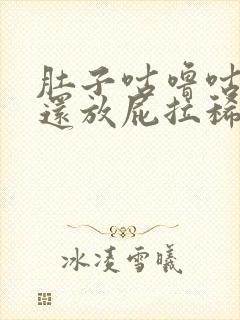 肚子咕嚕咕
還放屁拉稀
冰凌雪曦